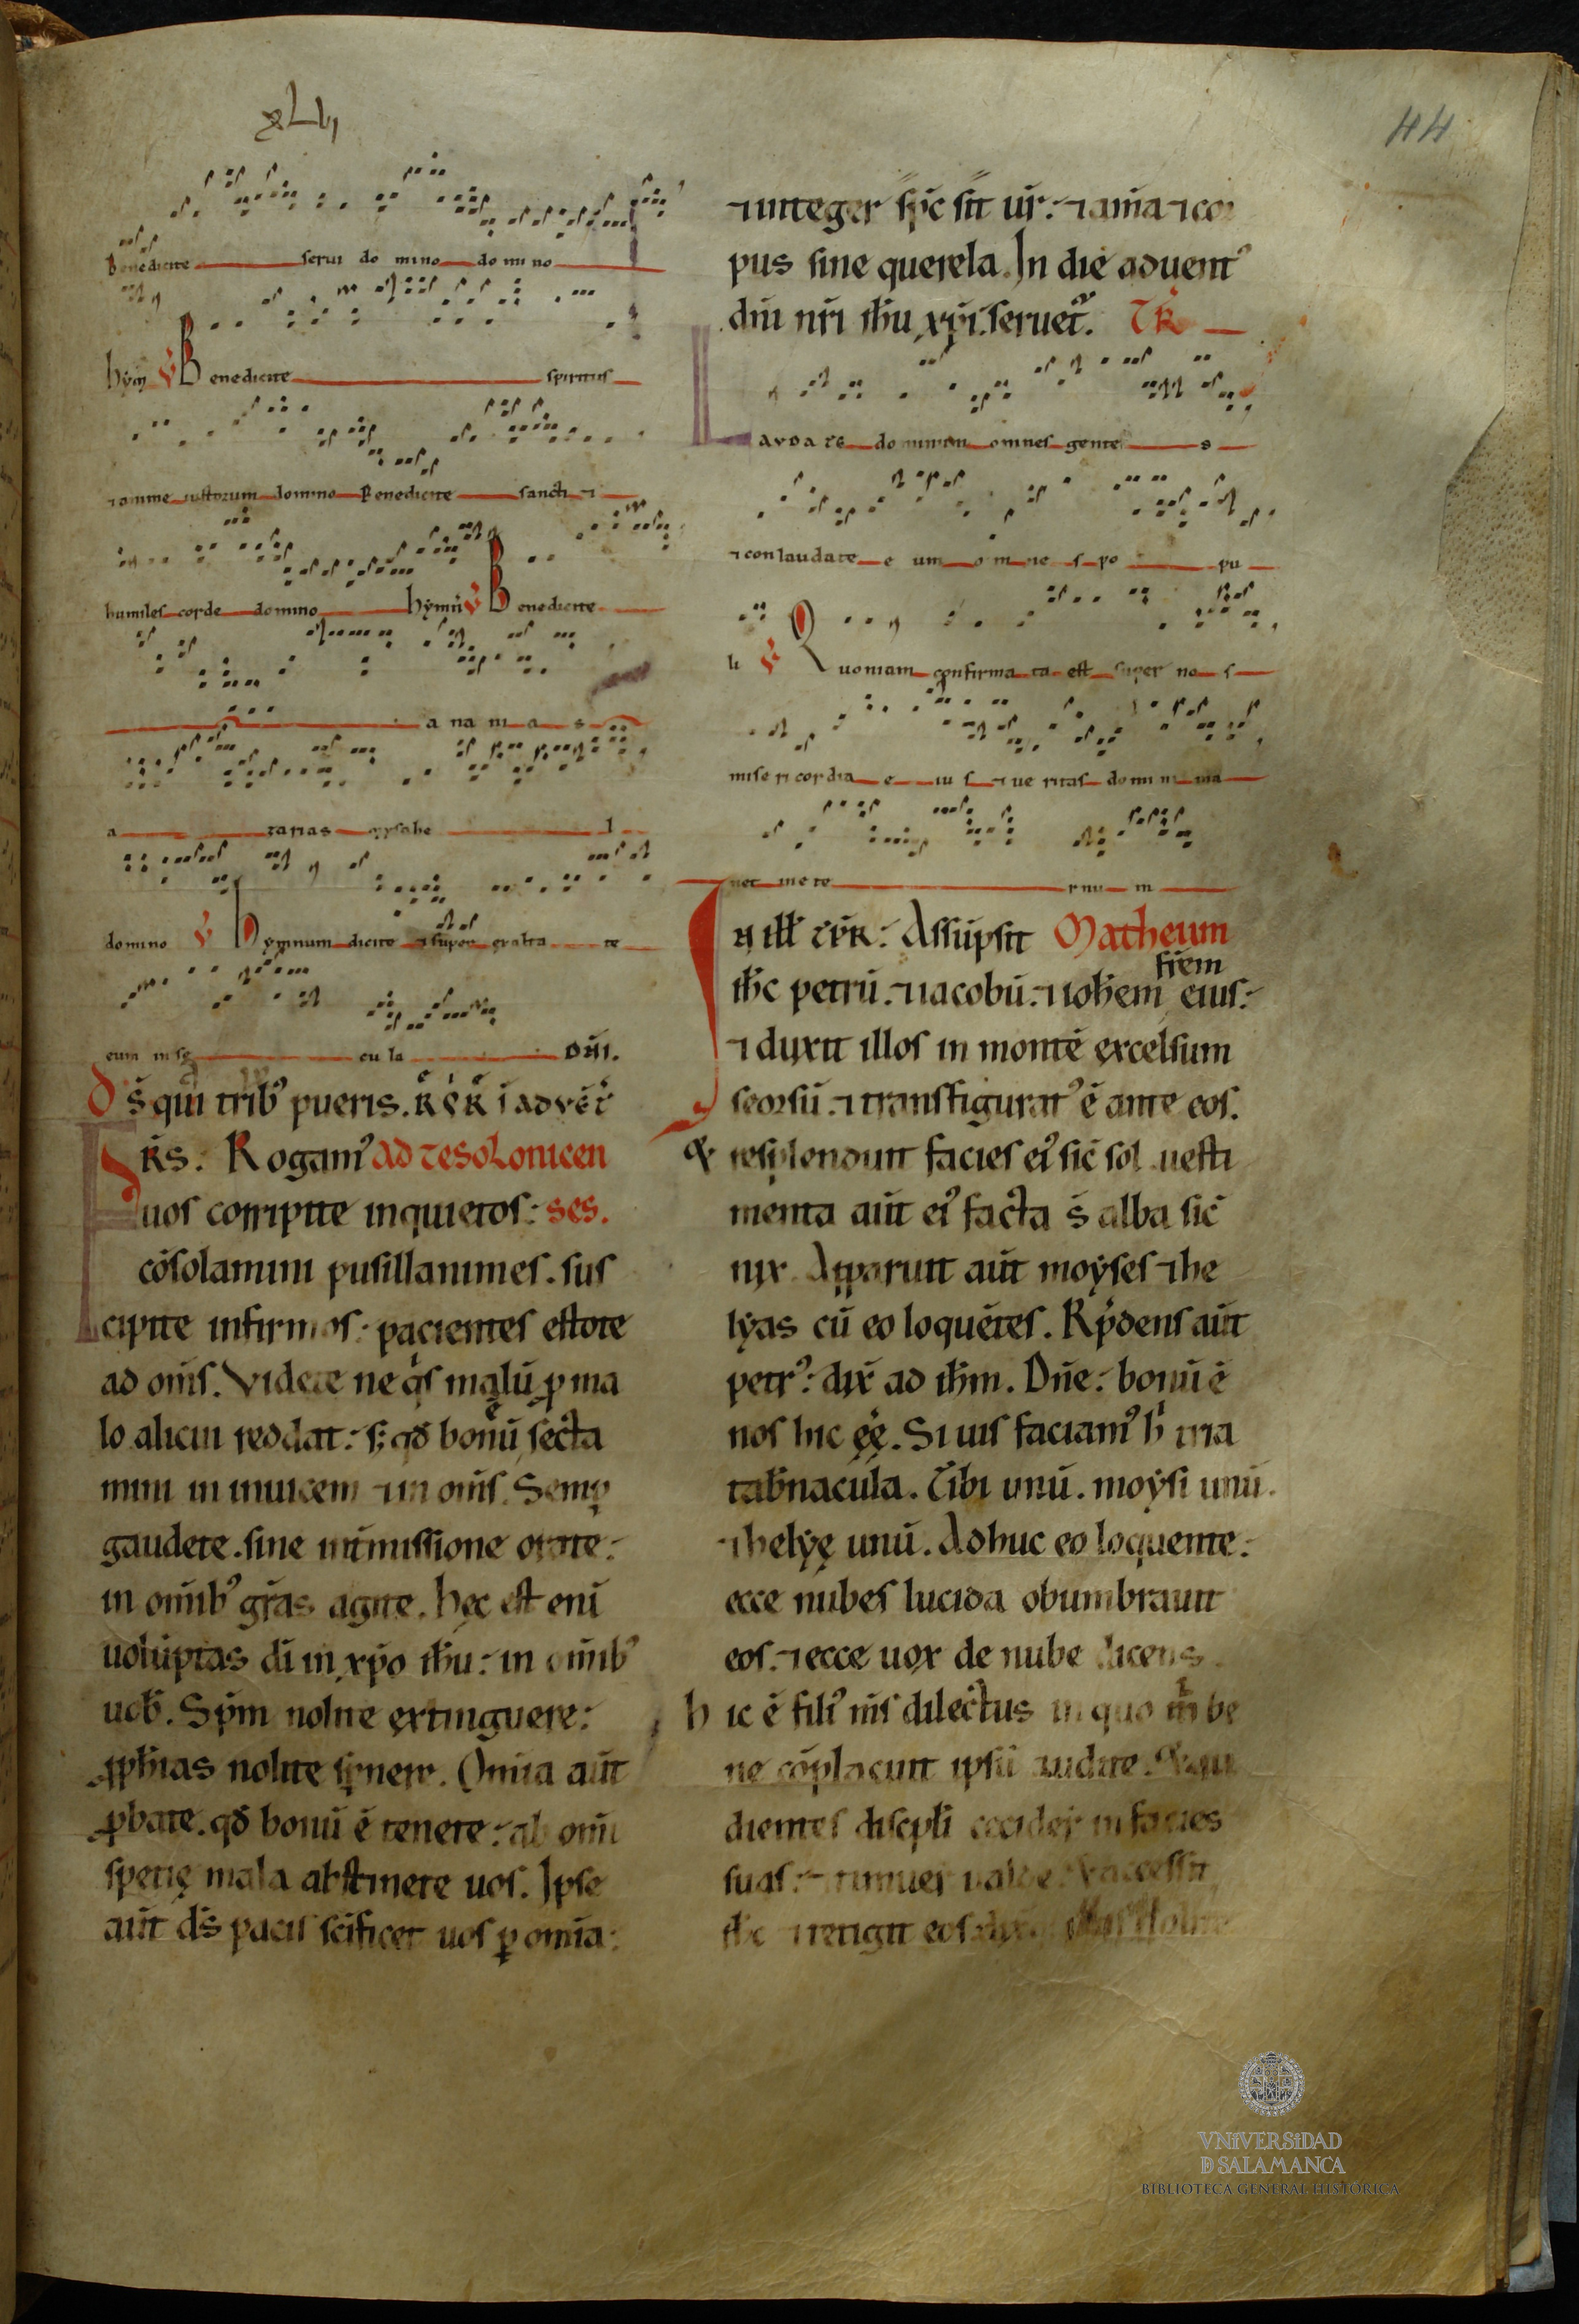 xLIIII
44
Benedicite serui do mino do mi no
hỹm V Benedicite spiritus
⁊ anime iustorum domino Benedicite sancti ⁊
humiles corde domino hỹmũ V Benedicite
a na ni a s
a zarias mysahe l
domino V hymnum dicite ⁊ super exalta te
eum in se cu la DÑI.
d̄s̄ qui trib⁹ pueris. R̄ĒR̄ ī adūēt̄
FR̄S. Rogam⁹ Ad tesolonicen
uos corripite inquietos: ses.
cōsolamini pusillanimes. sus
cipite infirmos: pacientes estote
ad om̄s. Videte ne q̇s malū ꝓ ma
lo alicui reddat: s; qđ bonū secta
mini in inuicem ⁊ in om̄s. Semꝑ
gaudete. sine int̄missione orate:
in om̄ib⁹ gr̄as agite. hęc est eni
uoluptas dī in xp̄o ihū: in om̄ib⁹
uob̄. Sp̄m nolite extinguere:
ꝓph̄ias nolite sp̄nere. Omīa aūt
ꝓbate. qđ bonū ē tenete: ab om̄i
specię mala abstinete uos. Ipse
aūt d̄s pacis sc̄ificet uos ꝑ omīa:
⁊ integer sp̄c sit ur̄: ⁊ anīa ⁊ cor
pus sine querela. In diē aduent⁹
dn̄i nr̄i ih̄u xp̄i. seruet̃. TR̄
LAVDA TE dominum omnes gente s
⁊ conlaudate e um o m ne s po pu
li V Quoniam confirma ta est super no s
mise ri cordia e iu s ⁊ ue ritas domini ma
net in e te rnu m
IN ill̄ tp̄R: Assūpsit Matheum
ih̄c petrū. ⁊ iacobū. ⁊ ioh̄em fr̄em eius:
⁊ duxit illos in montē excelsum
seorsū. ⁊ transfigurat⁹ ē ante eos.
& resplenduit facies ei⁹ sic̄ sol uesti
menta aūt ei⁹ facta s̄ alba sic̄
nix. Apparuit aūt moỹses ⁊ he
lỹas cū eo loquētes. Rp̄dens aūt
petr⁹: dix̄ ad ih̄m. Dn̄e: bonū ē
nos hic ęę. Si uis faciam⁹ h̄ tria
tab̄nacula. Tibi unū. moỹsi unū.
⁊ helỹę unū. Adhuc eo loquente:
ecce nubes lucida obumbrauit
eos. ⁊ ecce uox de nube dicens.
hic ē fili⁹ m̄s dilectus in quo m̄ be
ne cōplacuit ipsū audite. & au
dientes discpl̄i cecider̄ in facies
suas: ⁊ timuer̄ ualde. & accessit
ih̄c ⁊ tetigit eos nolite
VNiVERSiDAD
D SALAMANCA
BIBLIOTECA GENERAL HISTÓRICA